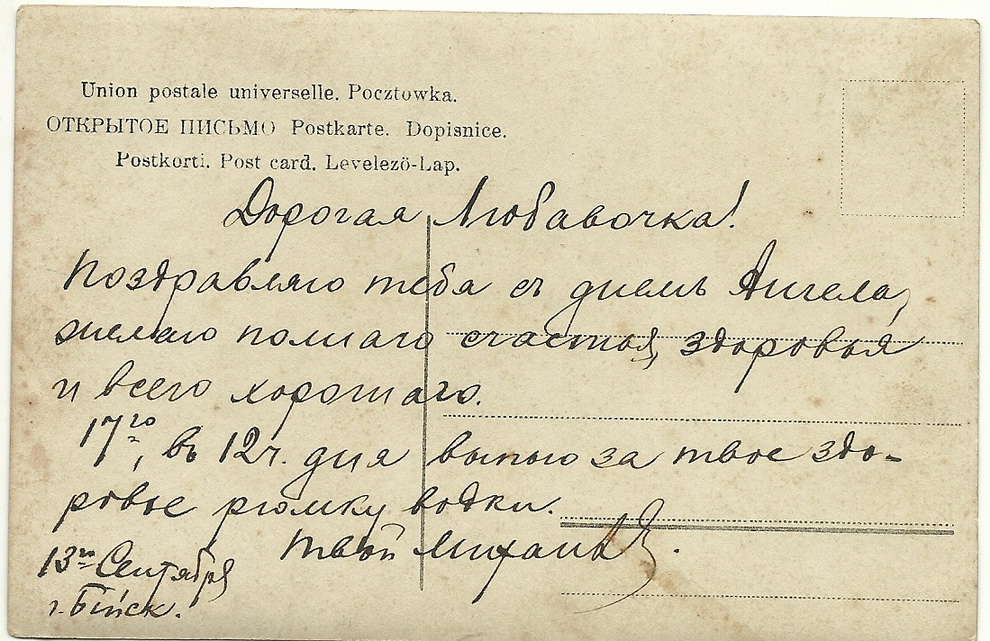 Union postale universelle. Pocztowka.
ОТКРЫТОЕ ПИСЬМО Postkarte. Dopisnice.
Postkorti. Post card. Levelezö-Lap.
Дорогая Любавочка!
Поздравляю тебя съ днемъ Ангела,
желаю полнаго счастья, здоровья
и всего хорошаго.
17го, въ 12ч. дня выпью за твое здо-
ровье рюмку водки.
Твой Михаилъ.
13го Сентября
г. Бійск.